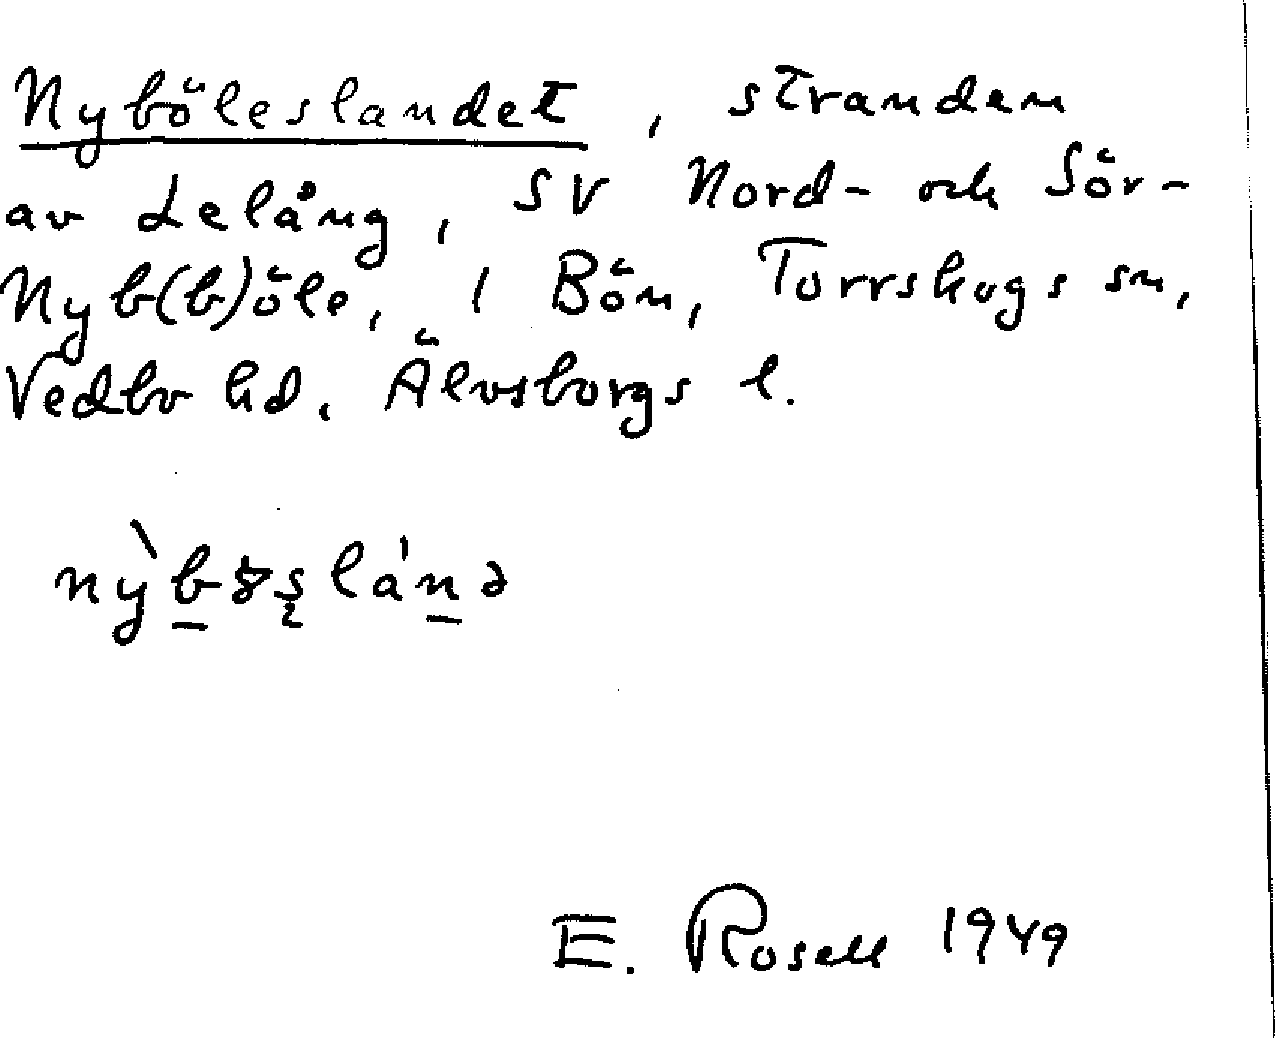 Nyböleslandet, stranden
av Lelång, SV Nord- och Sör-
Nyb(b)öle, i Bön, Torrskogs sn,
Vedbo hd. Älvsborgs l.
E. Rosell 1949